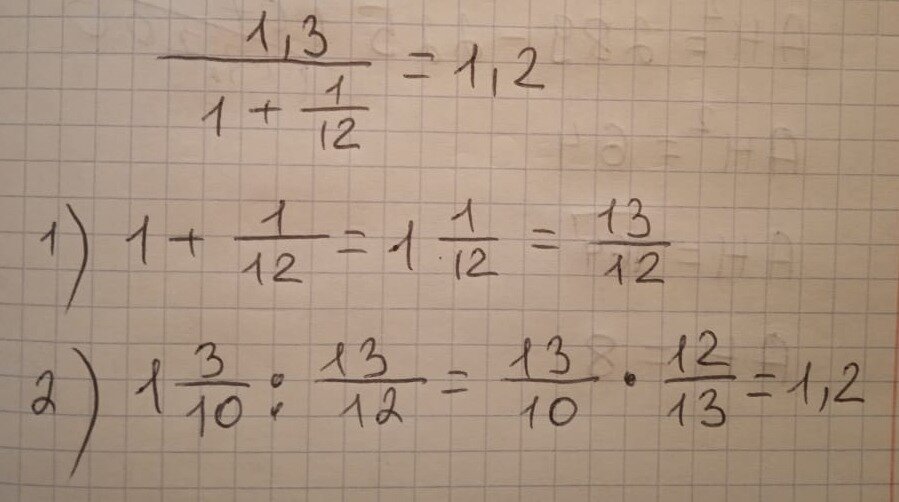 1,3 / (1 + 1/12) = 1,2
1) 1 + 1/12 = 1 1/12 = 13/12
2) 1 3/10 : 13/12 = 13/10 · 12/13 = 1,2